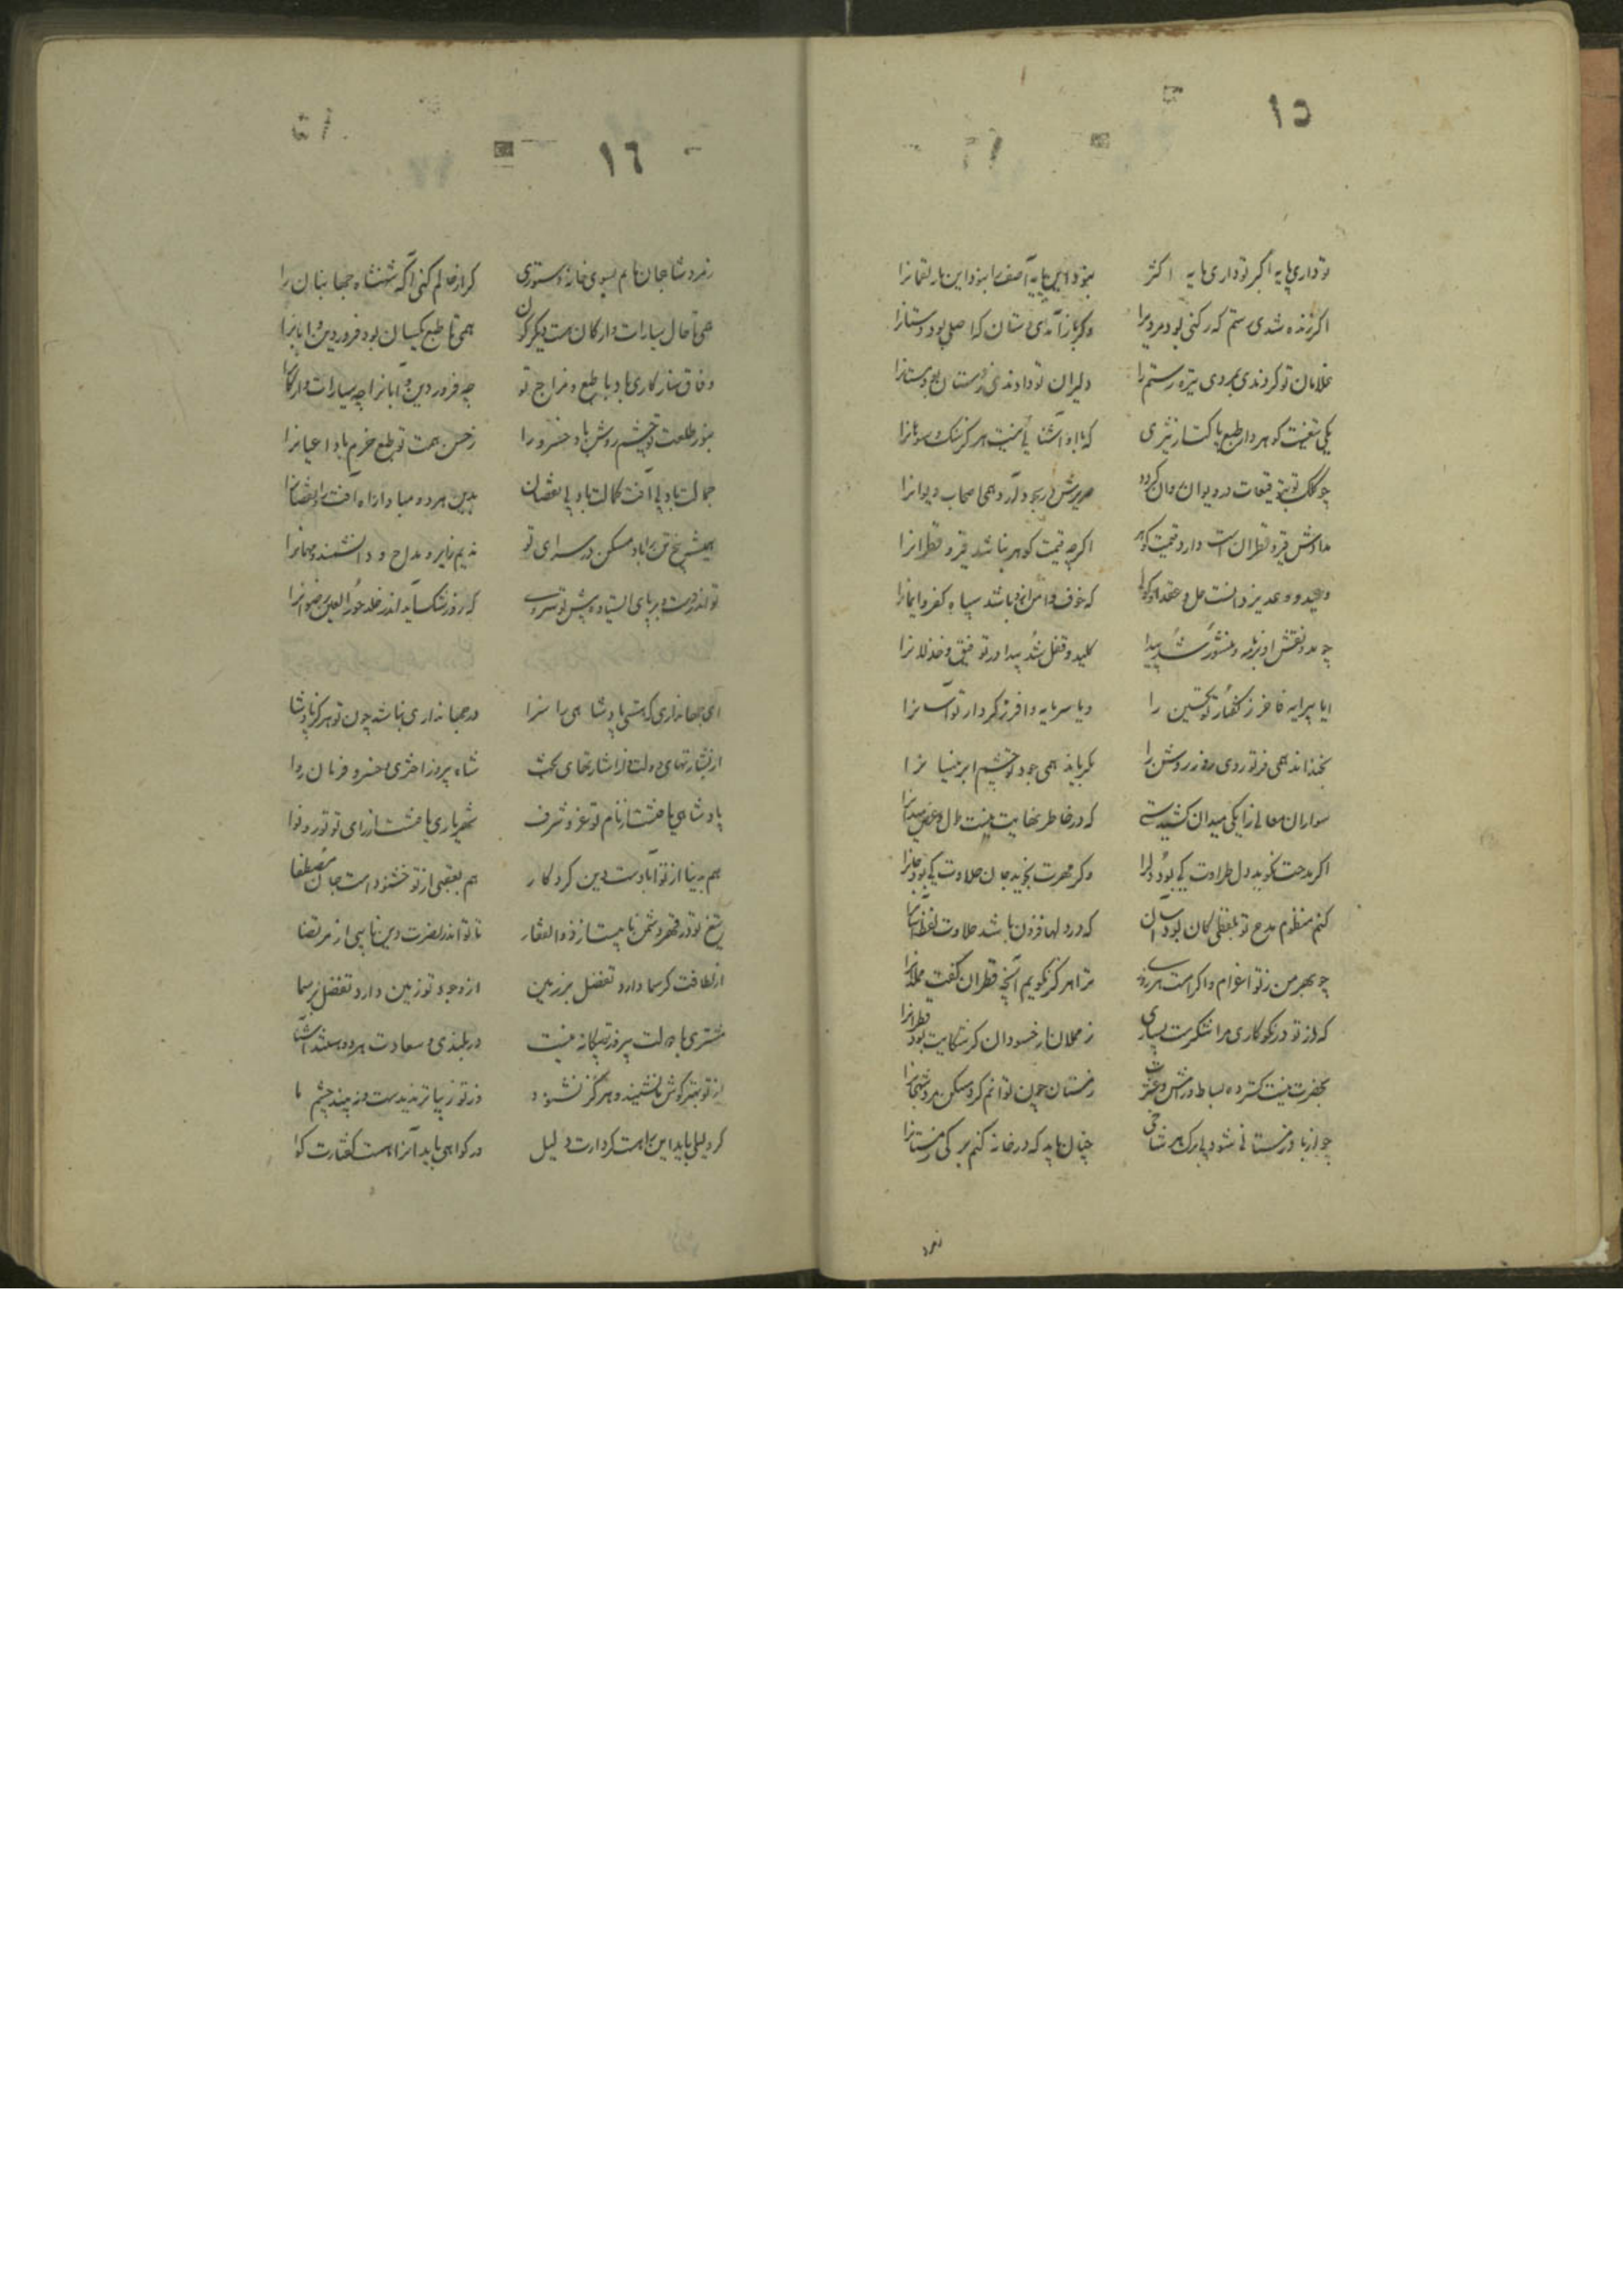 ١٥
تو داری پایه اکبر تو داری مایه اکثر نبود این پایه آصف را نبود این مایه لقمانرا
اکر زنده شدی رستم که رکنی بود مردیرا وکر باز آمدی دستان که اصلی بود دستانرا
غلامان تو کردندی بمردی نیزه رستم را دلیران تو دادندی
یکی تیغست کوهردار طبع پاک که با او آشنایی نیست هرکز سنک و سوهانرا
چو کلک تو بتوقیعات در دیوان روان کردد صریرش در وجد آرد همی اصحاب دیوانرا
مدادش قیر و قطران است و دارد قیمت کوهر اکرچه قیمت کوهر نباشد قیر و قطرانرا
وعید و وعد یزدانست حل و عقد او کویی که خوف و امن ازو باشد سپاه کفر و ایمانرا
چو مد و نقش او بر نامه و منشور شد پیدا کلید و قفل شد پیدا در توفیق و خذلانرا
ایا پیرایه فاخر ز کفتار تو تحسین را و یا سرمایه وافر ز کردار تو احسانرا
بخنداند همی فر تو روی روز روشن را بکریاند همی جود تو چشم ابر نیسانرا
سواران معانی را یکی میدان کشیدستی که در خاطر نهایت نیست طول و عرض میدانرا
اکر مدحت نکوید دل طراوت کی بود دلرا وکر مهرت نجوید جان حلاوت کی بود جانرا
کنم منظوم مدح تو بلفظی کان بود آسان که در دلها فزون باشد حلاوت لفظ آسانرا
چو بهر من ز تو انعام و اکرامست هر روزی ترا هرکز نکویم آنچه قطران کفت مملانرا
که از تو در نکوکاری مرا شکرست بسیاری ز مملان ار خسودان کر شکایت بود قطرانرا
بحضرت نیست کسترده بساط ورامش و عشرت زمستان چون توانم کرد مسکن مرو شهجانرا
چو از باد زمستانی شود بی برک هر شاخی چنان باید که در خانه کنم برکی زمستانرا
زمرو
١٦
زمرو شاهجان نایم بسوی خانه دستوری کر از حالم کنی آکه شهنشاه جهانبان را
همی تا حال سیارات و ارکان هست دیکرکون همی تا طبع یکسان بود فروردین و آبانرا
وفاق سازکاری باد با طبع و مزاج تو چه فروردین و آبانرا چه سیارات و ارکانرا
بنور طلعت تو چشم روشن باد خسرو را ز حسن همت تو طبع خرم باد اعیانرا
جمالت باد بی آفت کمالت باد بی نقصان بدین هر دو مبادا راه آفت را و نقصانرا
همیشه چرخ آباد مسکن در سرای تو ندیم و زایر و مداح و دانشمند و مهمانرا
تو اندر صدر و بر پای ایستاده پیش تو سروی که زو رشک آید اندر خلد حور العین و رضوانرا
ای جهانداری که هستی پادشاهی را سزا در جهانداری نباشد چون تو هرکز پادشا
از بشارتهای دولت وز اشارتهای بخت شاه پیروز اختری و خسرو فرمان روا
پادشاهی یافتست از نام تو عز و شرف شهریاری یافتست از رای تو نور و نوا
هم بدنیا از تو آبادست دین کردکار هم بعقبی از تو خشنودست جان مصطفا
تیغ تو در قهر دشمن نایبست از ذوالفقار تا تو اندر نصرت دین نایبی از مرتضا
از لطافت کر سما دارد تفضل بر زمین از وجود تو زمین دارد تفضل بر سما
مشتری با دولت پیروز تو بیکانه نیست در بلندی و سعادت هر دو هستند آشنا
از تو بهتر کوش نشنیدست و هرکز نشنود وز تو زیباتر ندیدست و نه بیند چشم ما
کر دلیلی باید این را هست کردارت دلیل ور کواهی باید آنرا هست کفتارت کوا